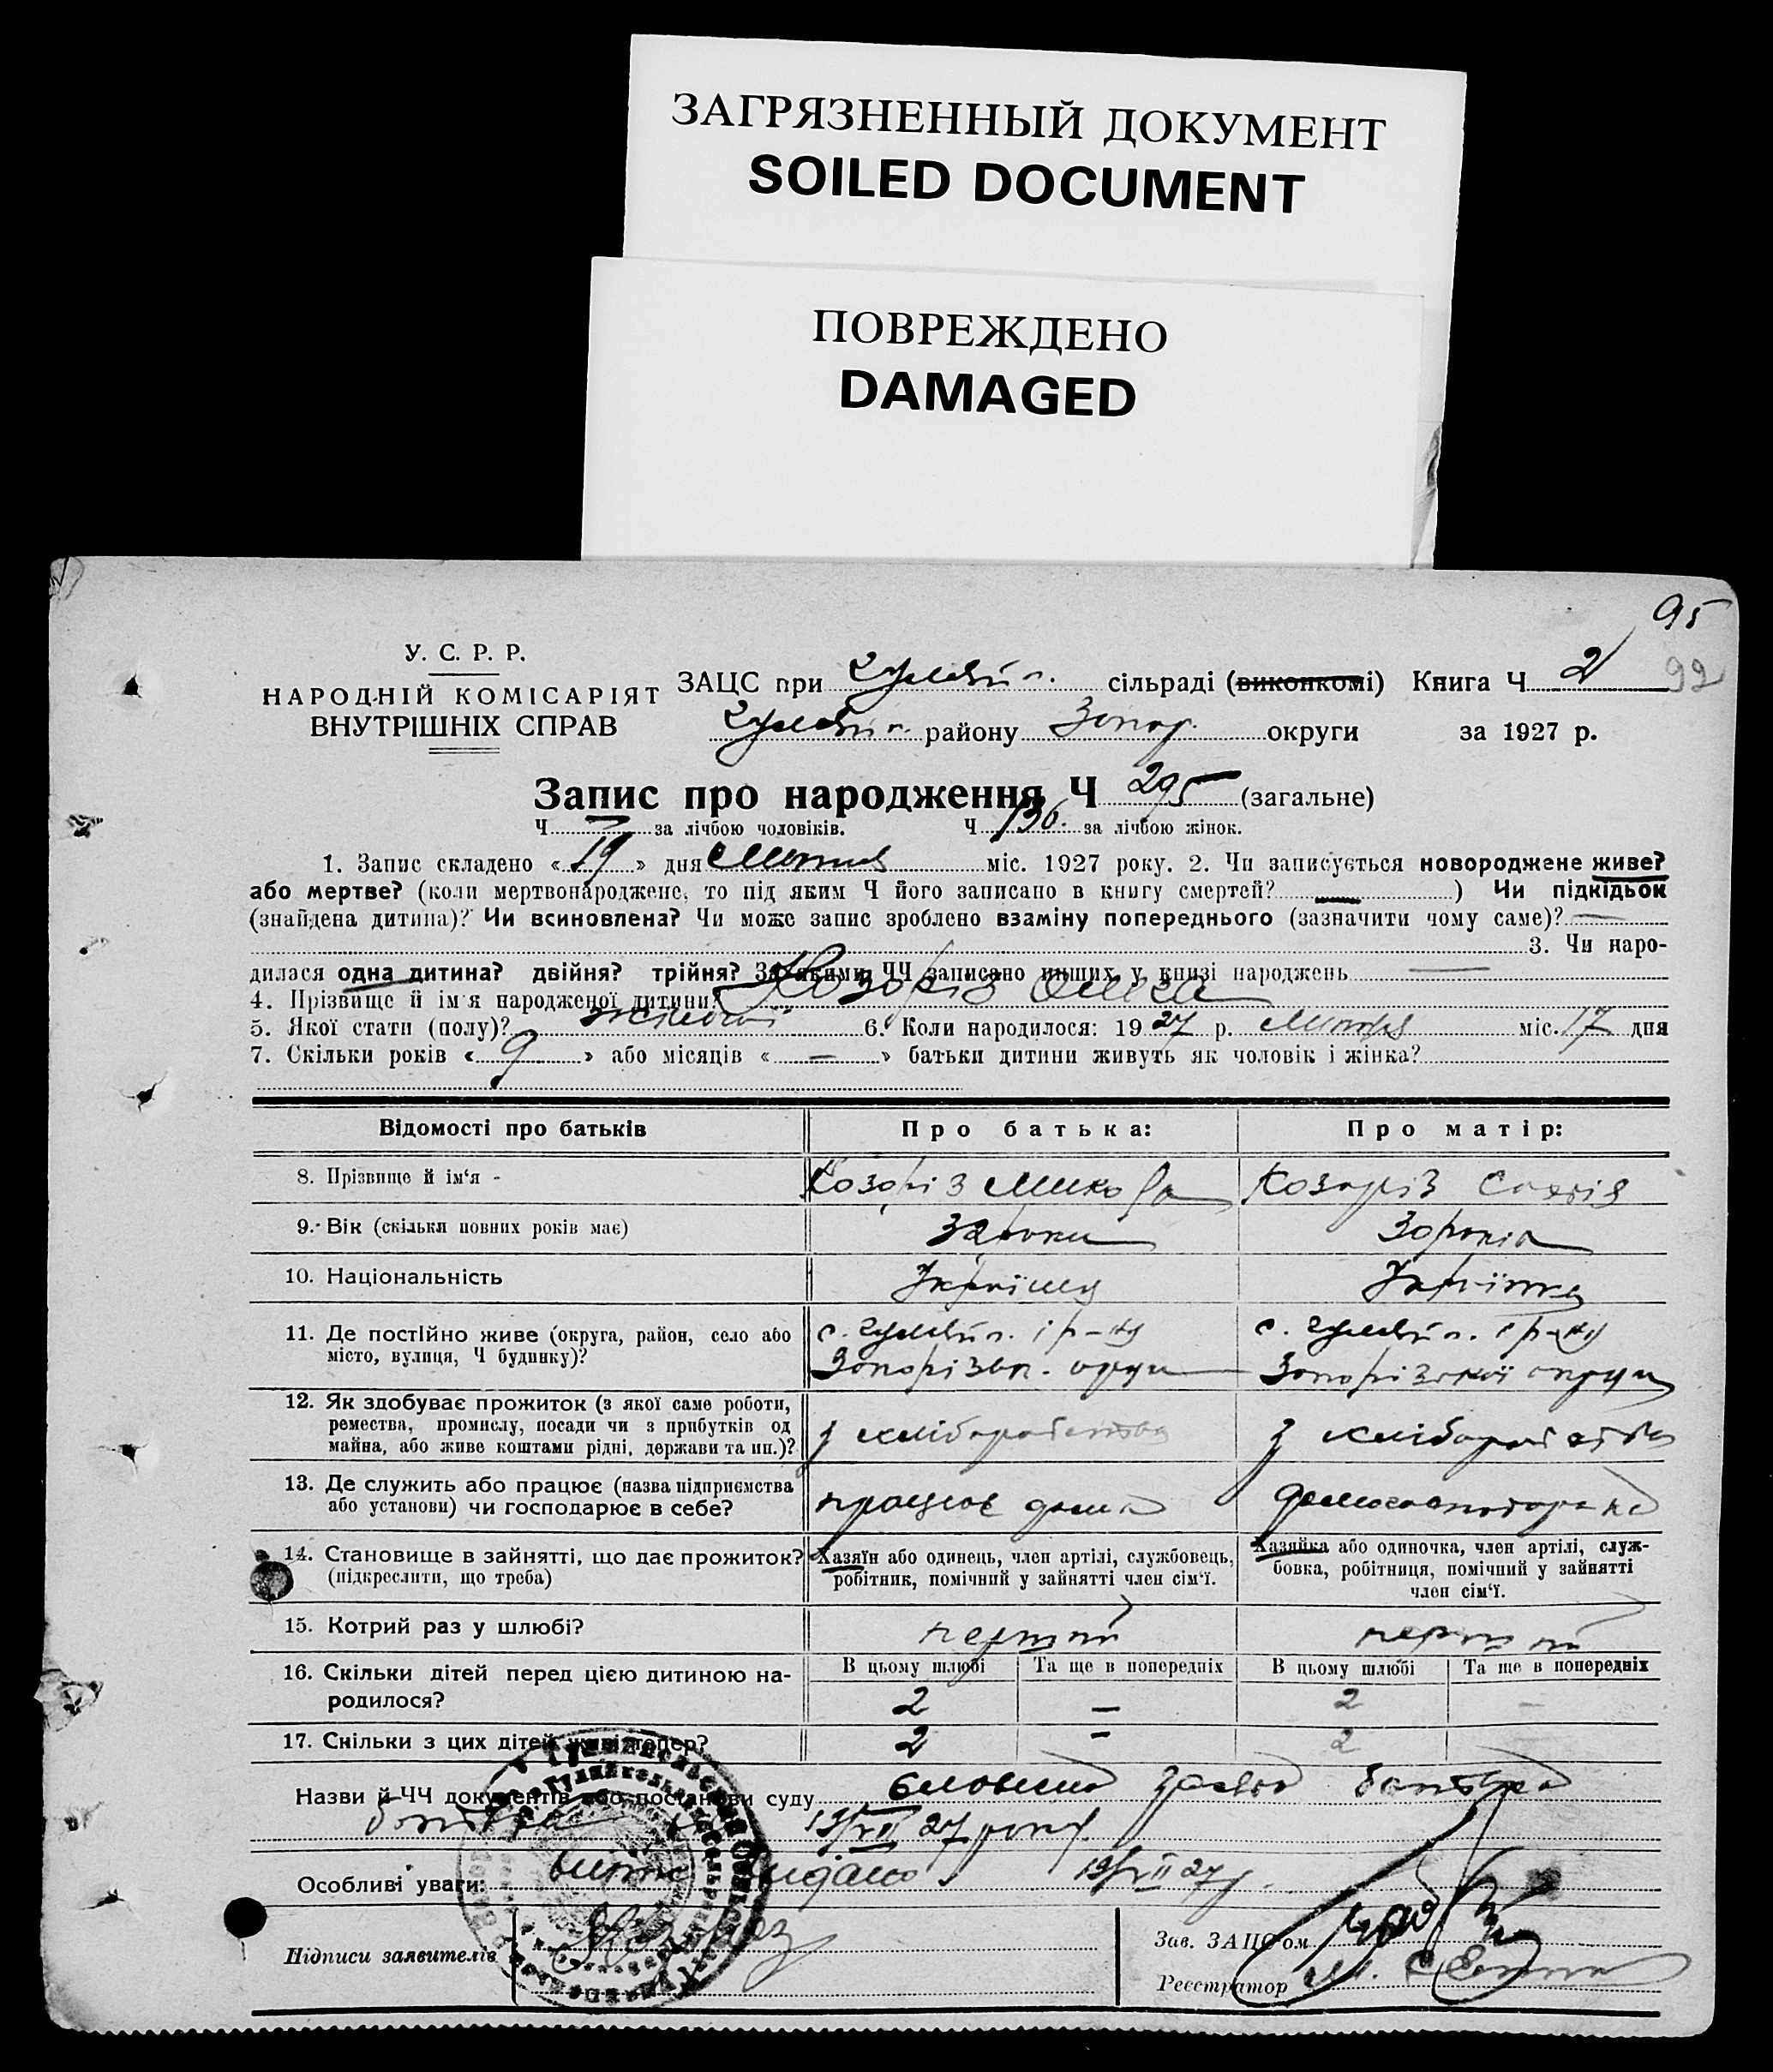 ЗАГРЯЗНЕННЫЙ ДОКУМЕНТ
SOILED DOCUMENT
ПОВРЕЖДЕНО
DAMAGED
95
92
У. С. Р. Р.
НАРОДНІЙ КОМІСАРІЯТ
ВНУТРІШНІХ СПРАВ
ЗАЦС при Гуляйп. сільраді (виконкомі) Книга Ч 2
Гуляйп. району Запор. округи за 1927 р.
Запис про народження Ч 295 (загальне)
Ч — за лічбою чоловіків. Ч 136. за лічбою жінок.
1. Запис складено « 19 » дня міс. 1927 року. 2. Чи записується новороджене живе?
або мертве? (коли мертвонароджене, то під яким Ч його записано в книгу смертей? — ) Чи підкідьок
(знайдена дитина)? Чи всиновлена? Чи може запис зроблено взаміну попереднього (зазначити чому саме)? —
3. Чи наро-
дилася одна дитина? двійня? трійня? За якими ЧЧ записано инших у книзі народжень —
4. Прізвище й ім'я народженої дитини? Козоріз
5. Якої стати (полу)? жіночої 6. Коли народилося: 1927 р. міс. 17 дня
7. Скільки років « 9 » або місяців « — » батьки дитини живуть як чоловік і жінка?
Відомості про батьків Про батька: Про матір:
8. Прізвище й ім'я - Козоріз Микола Козоріз Софія
9. Вік (скільки повних років має) 32 роки 30 років
10. Національність Українец Українка
11. Де постійно живе (округа, район, село або с. Гуляйп. і р-ну с. Гуляйп. і р-ну
місто, вулиця, Ч будинку)? Запорізьк. округи Запорізької округи
12. Як здобуває прожиток (з якої саме роботи,
ремества, промислу, посади чи з прибутків од
майна, або живе коштами рідні, держави та ин.)? з хліборобства з хліборобства
13. Де служить або працює (назва підприємства
або установи) чи господарює в себе? працює дома домогосподарка
14. Становище в зайнятті, що дає прожиток? Хазяїн або одинець, член артілі, службовець, Хазяйка або одиночка, член артілі, служ-
(підкреслити, що треба) робітник, помічний у зайнятті член сім'ї. бовка, робітниця, помічний у зайнятті
член сім'ї.
15. Котрий раз у шлюбі? перший перший
16. Скільки дітей перед цією дитиною на- В цьому шлюбі Та ще в попередніх В цьому шлюбі Та ще в попередніх
родилося? 2 — 2 —
17. Скільки з цих дітей живі тепер? 2 - 2
Назви й ЧЧ документів або постанови суду словесна заява батька
19/VII 27 року.
Особливі уваги: витяг видано 19/VII 27 р.
Підписи заявителів
Зав. ЗАЦС'ом
Реєстратор